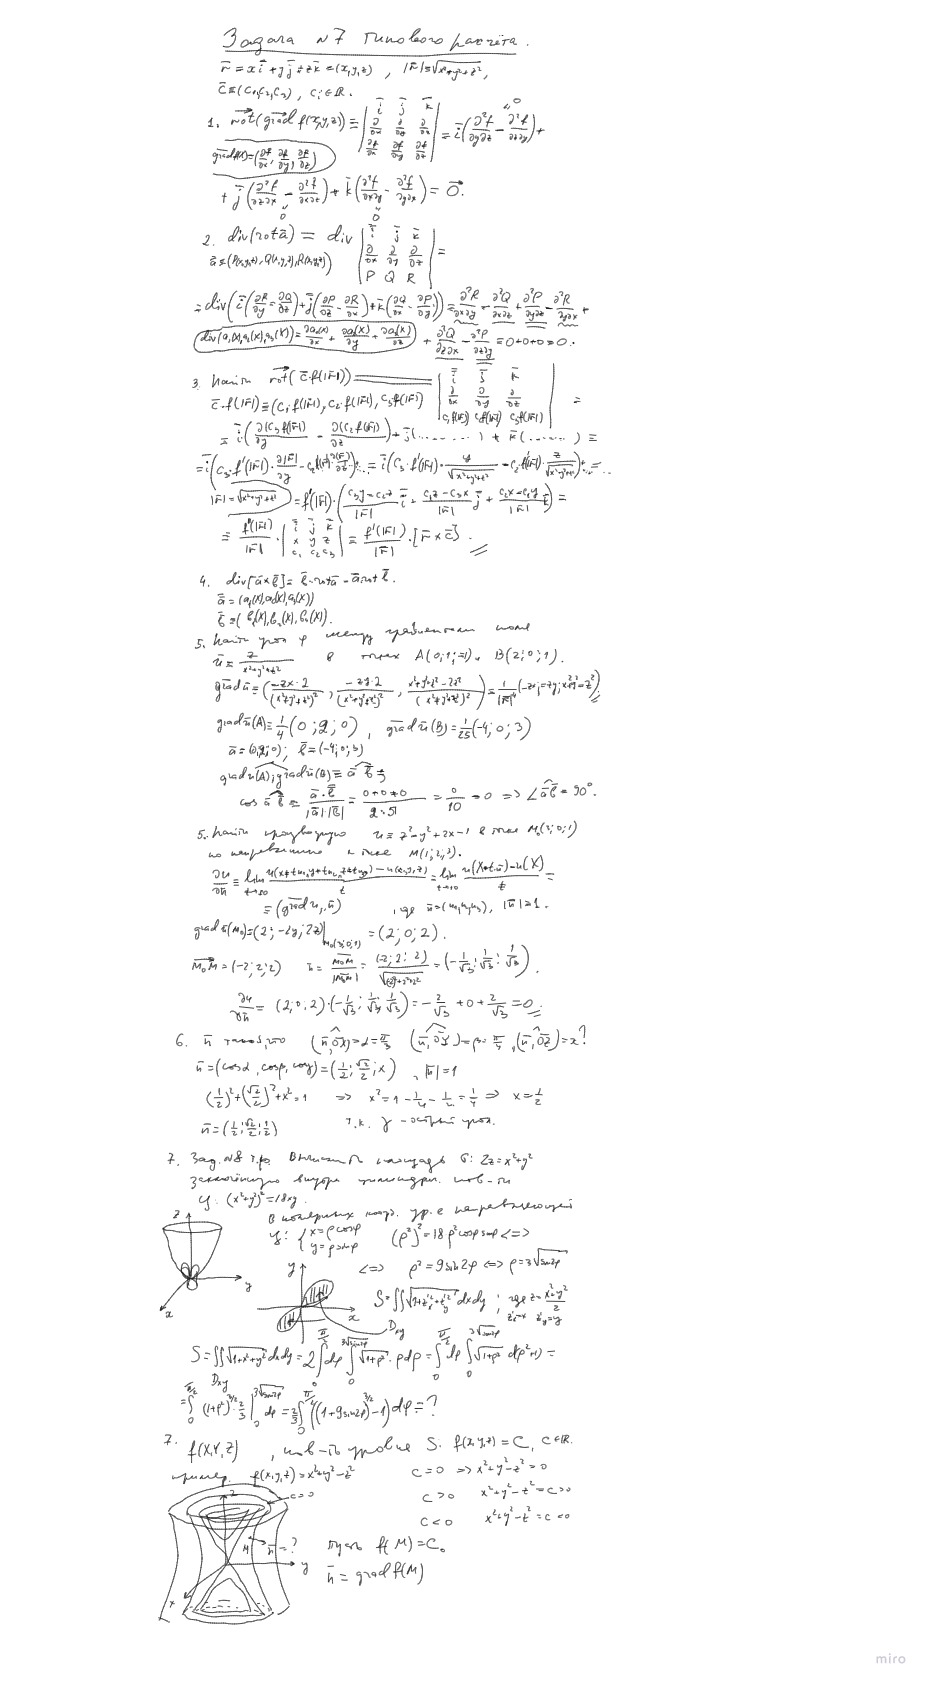 Задача №7 типового расчёта.
r̄ = xī + yj̄ + zk̄ = (x,y,z) , |r̄| = √(x²+y²+z²),
c̄ = (c₁,c₂,c₃) , cᵢ∈R.
1. rot(grad f(x,y,z)) = | ī j̄ k̄ ; ∂/∂x ∂/∂y ∂/∂z ; ∂f/∂x ∂f/∂y ∂f/∂z | = ī(∂²f/∂y∂z − ∂²f/∂z∂y) +
grad f(x) = (∂f/∂x, ∂f/∂y, ∂f/∂z)
+ j̄(∂²f/∂z∂x − ∂²f/∂x∂z) + k̄(∂²f/∂x∂y − ∂²f/∂y∂x) = 0̄.
2. div(rot ā) = div | ī j̄ k̄ ; ∂/∂x ∂/∂y ∂/∂z ; P Q R | =
ā = (P(x,y,z), Q(x,y,z), R(x,y,z))
= div(ī(∂R/∂y − ∂Q/∂z) + j̄(∂P/∂z − ∂R/∂x) + k̄(∂Q/∂x − ∂P/∂y)) = ∂²R/∂x∂y − ∂²Q/∂x∂z + ∂²P/∂y∂z − ∂²R/∂y∂x +
div(a₁(x),a₂(x),a₃(x)) = ∂a₁(x)/∂x + ∂a₂(x)/∂y + ∂a₃(x)/∂z + ∂²Q/∂z∂x − ∂²P/∂z∂y = 0+0+0 = 0.
3. Найти rot(c̄·f(|r̄|)) = | ī j̄ k̄ ; ∂/∂x ∂/∂y ∂/∂z ; c₁f(|r̄|) c₂f(|r̄|) c₃f(|r̄|) | =
c̄·f(|r̄|) = (c₁·f(|r̄|), c₂·f(|r̄|), c₃f(|r̄|))
= ī(∂(c₃f(|r̄|))/∂y − ∂(c₂f(|r̄|))/∂z) + j̄(........) + k̄(.......) =
= ī(c₃·f'(|r̄|)·∂|r̄|/∂y − c₂f'(|r̄|)·∂|r̄|/∂z)+... = ī(c₃·f'(|r̄|)·y/√(x²+y²+z²) − c₂·f'(|r̄|)·z/√(x²+y²+z²))+...=...
|r̄| = √(x²+y²+z²) = f'(|r̄|)·((c₃y−c₂z)/|r̄| ī + (c₁z−c₃x)/|r̄| j̄ + (c₂x−c₁y)/|r̄| k̄) =
= f'(|r̄|)/|r̄| · | ī j̄ k̄ ; x y z ; c₁ c₂ c₃ | = f'(|r̄|)/|r̄| · [r̄ × c̄].
4. div[ā×b̄] = b̄·rot ā − ā rot b̄.
ā = (a₁(x),a₂(x),a₃(x))
b̄ = (b₁(x),b₂(x),b₃(x)).
5. Найти угол φ между градиентами поля
u = z/(x²+y²+z²) в точках A(0;1;−1) и B(2;0;1).
grad u = (−zx·2/(x²+y²+z²)², −zy·2/(x²+y²+z²)², (x²+y²+z²−2z²)/(x²+y²+z²)²) = 1/|r̄|⁴ (−zx; −zy; x²+y²−z²)
grad u(A) = 1/4 (0;2;0) , grad u(B) = 1/25 (−4;0;3)
ā = (0;2;0); b̄ = (−4;0;3)
grad u(A); grad u(B) = ā b̄ ;
cos ā b̄ = ā·b̄/(|ā|·|b̄|) = (0+0+0)/(2·5) = 0/10 = 0 => ∠ā b̄ = 90°.
5. Найти производную u = z²−y²+2x−1 в точке M₀(3;0;1)
по направлению к точке M(1;2;3).
∂u/∂n̄ = lim t→+0 (u(x+tn₁,y+tn₂,z+tn₃)−u(x,y,z))/t = lim t→+0 (u(X+t·n̄)−u(X))/t =
= (grad u, n̄) , где n̄ = (n₁,n₂,n₃), |n̄| = 1.
grad u(M₀) = (2; −2y; 2z)|M₀(3;0;1) = (2;0;2).
M₀M = (−2;2;2) n̄ = M₀M/|M₀M| = (−2;2;2)/√((−2)²+2²+2²) = (−1/√3; 1/√3; 1/√3).
∂u/∂n̄ = (2;0;2)·(−1/√3; 1/√3; 1/√3) = −2/√3 + 0 + 2/√3 = 0
6. n̄ таков, что (n̄,OX) = α = π/3 (n̄,OY) = β = π/4, (n̄,OZ) = x?
n̄ = (cosα, cosβ, cosγ) = (1/2; √2/2; x) , |n̄| = 1
(1/2)² + (√2/2)² + x² = 1 => x² = 1 − 1/4 − 1/2 = 1/4 => x = 1/2
n̄ = (1/2; √2/2; 1/2) т.к. γ − острый угол.
7. Зад. №8 т.р. Вычислить площадь σ: 2z = x²+y²
заключённую внутри цилиндрич. пов-ти
Ц: (x²+y²)² = 18xy.
в полярных коорд. ур-е направляющей
Ц: { x = ρcosφ ; y = ρsinφ (ρ²)² = 18ρ²cosφ sinφ <=>
<=> ρ² = 9sin2φ <=> ρ = 3√sin2φ
z y x
y x
S = ∬√(1+z'ₓ²+z'ᵧ²)dxdy ; где z = (x²+y²)/2
z'ₓ=x z'ᵧ=y
Dxy
S = ∬√(1+x²+y²)dxdy = 2∫₀^(π/2) dφ ∫₀^(3√sin2φ) √(1+ρ²)·ρdρ = ∫₀^(π/2) dφ ∫₀^(3√sin2φ) √(1+ρ²) d(ρ²+1) =
Dxy
= ∫₀^(π/2) (1+ρ²)^(3/2)·2/3 |₀^(3√sin2φ) dφ = 2/3 ∫₀^(π/2) ((1+9sin2φ)^(3/2) − 1)dφ = ?
7. f(x,y,z) , пов-ть уровня S: f(x,y,z) = C, C∈R.
пример. f(x,y,z) = x²+y²−z² C=0 => x²+y²−z² = 0
C>0 x²+y²−z² = C>0
C<0 x²+y²−z² = C<0
z C>0
M n̄=? y x
пусть f(M) = C₀
n̄ = grad f(M)
miro